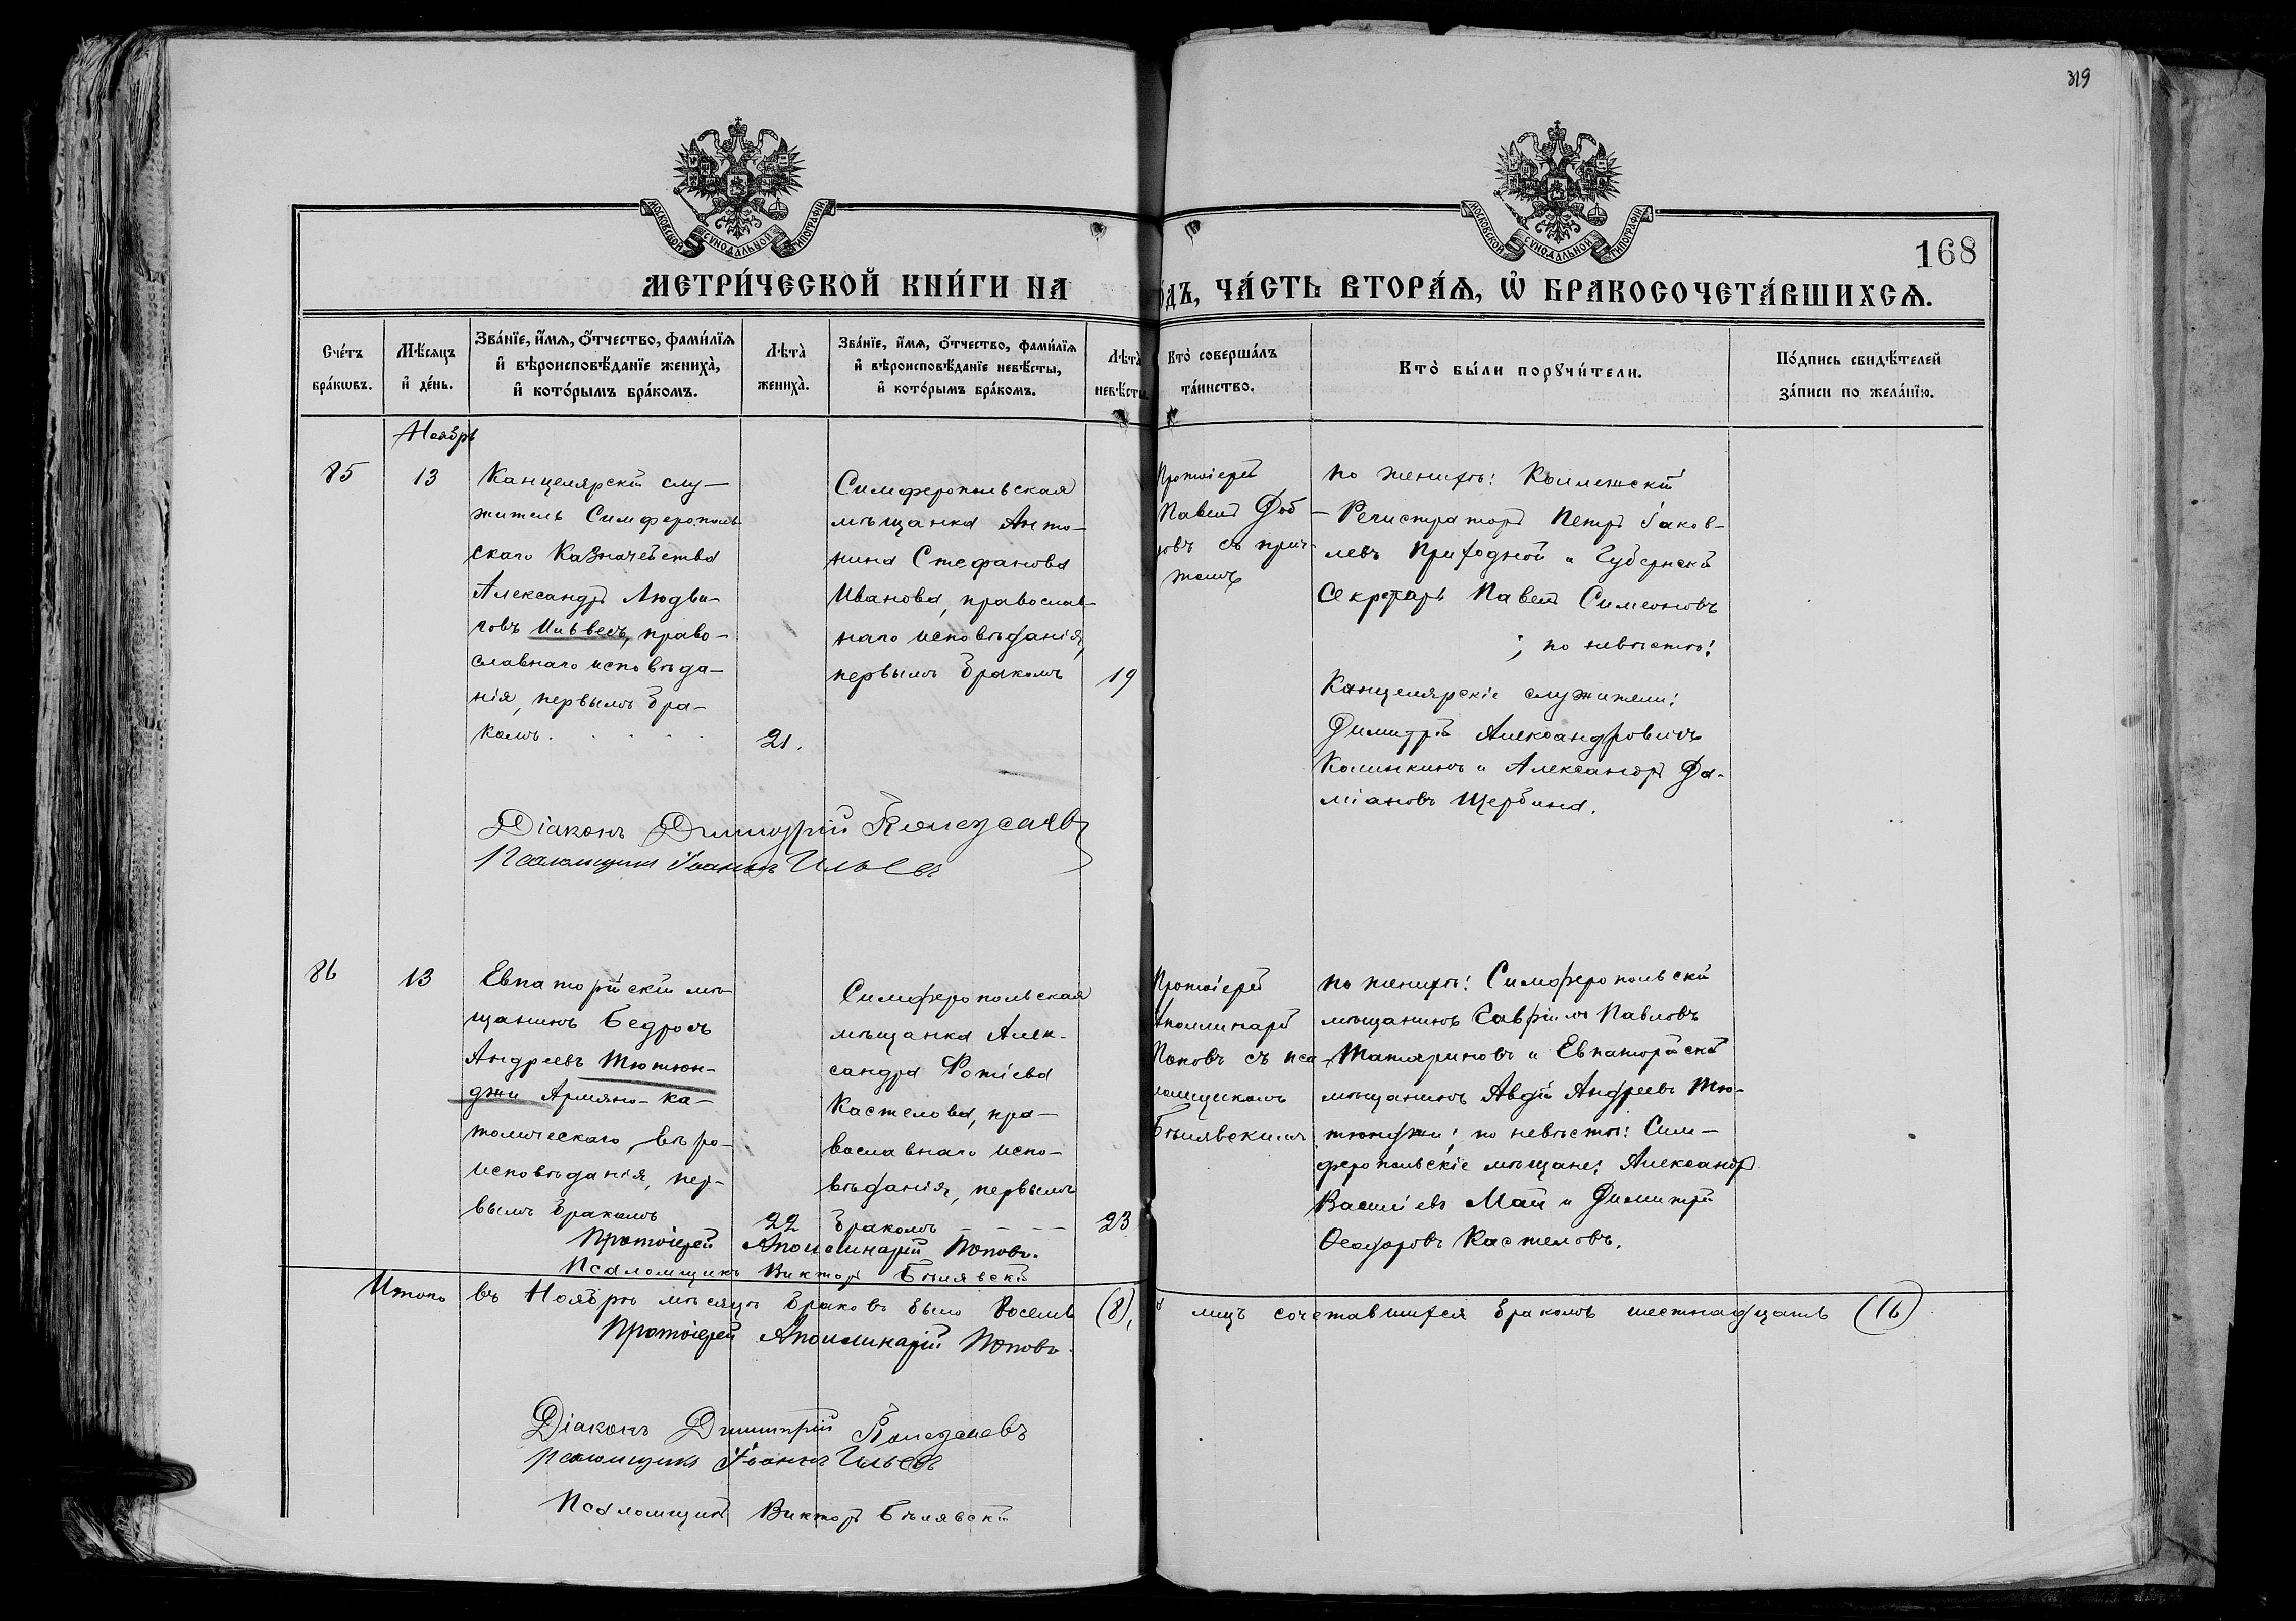 319
МОСКОВСКОЙ СѴНОДАЛЬНОЙ ТИПОГРАФІИ
МОСКОВСКОЙ СѴНОДАЛЬНОЙ ТИПОГРАФІИ
168
МЕТРИ́ЧЕСКОЙ КНИ́ГИ НА
ОДЪ, ЧА́СТЬ ВТОРА́Ѧ, Ѡ҆ БРАКОСОЧЕТА́ВШИХСѦ.
Сче́тъ
бра́кѡвъ.
Мѣ́сяцъ
и҆ де́нь.
Зва́нїе, и҆́мѧ, ѻ҆́тчество, фами́лїѧ
и҆ вѣроисповѣ́данїе жениха̀,
и҆ кото́рымъ бра́комъ.
Лѣта̀
жениха̀.
Зва́нїе, и҆́мѧ, ѻ҆́тчество, фами́лїѧ
и҆ вѣроисповѣ́данїе невѣ́сты,
и҆ кото́рымъ бра́комъ.
Лѣта̀
невѣ́сты
Кто̀ соверша́лъ
та́инство.
Кто̀ бы́ли порꙋчи́тели.
По́дпись свидѣ́телей
за́писи по жела́нїю.
Ноябрь
85
13
Канцелярскій слу-
житель Симферополь-
скаго Казначейства
Александръ Людви-
говъ правo-
славнаго исповѣда-
нія, первымъ бра-
комъ. . . . .
21.
Симферопольская
мѣщанка Анто-
нина Стефанова
Иванова, православ-
наго исповѣданія,
первымъ бракомъ
19
Протоіерей
Павелъ Доб-
ровъ съ прич-
томъ
по женихѣ: Коллежскій
Регистраторъ Петръ Іаков-
левъ Приходной и Губернскій
Секретарь Павелъ Симеоновъ
; по невѣстѣ:
Канцелярскіе служители:
Димитрій Александровичъ
Калинкинъ и Александръ Да-
міановъ Щербина.
Діаконъ Димитрій
Псаломщикъ Іоаннъ Ильевъ
86
13
Евпаторійскій мѣ-
щанинъ Бедросъ
Андреевъ Тютюн-
джи Армяно-ка-
толическаго вѣро-
исповѣданія, пер-
вымъ бракомъ
22
Симферопольская
мѣщанка Алек-
сандра Фотіева
Кастелова, пра-
вославнаго испо-
вѣданія, первымъ
бракомъ - - - -
23
Протоіерей
Аполлинарій
Поповъ съ пса-
ломщикомъ
Бѣлявскимъ
по женихѣ: Симферопольскій
мѣщанинъ Гавріилъ Павловъ
Татариновъ и Евпаторійскій
мѣщанинъ Авдій Андреевъ Тю-
тюнджи; по невѣстѣ: Сим-
феропольскіе мѣщане: Александръ
Василіевъ Май и Димитрій
Ѳеодоровъ Кастеловъ.
Протоіерей Аполлинарій Поповъ.
Псаломщикъ Викторъ Бѣлявскій
Итого въ Ноябрѣ мѣсяцѣ браковъ было восемь (8), и лицъ сочетавшихся бракомъ шестнадцать (16)
Протоіерей Аполлинарій Поповъ.
Діаконъ Димитрій
Псаломщикъ Іоаннъ Ильевъ
Псаломщикъ Викторъ Бѣлявскій